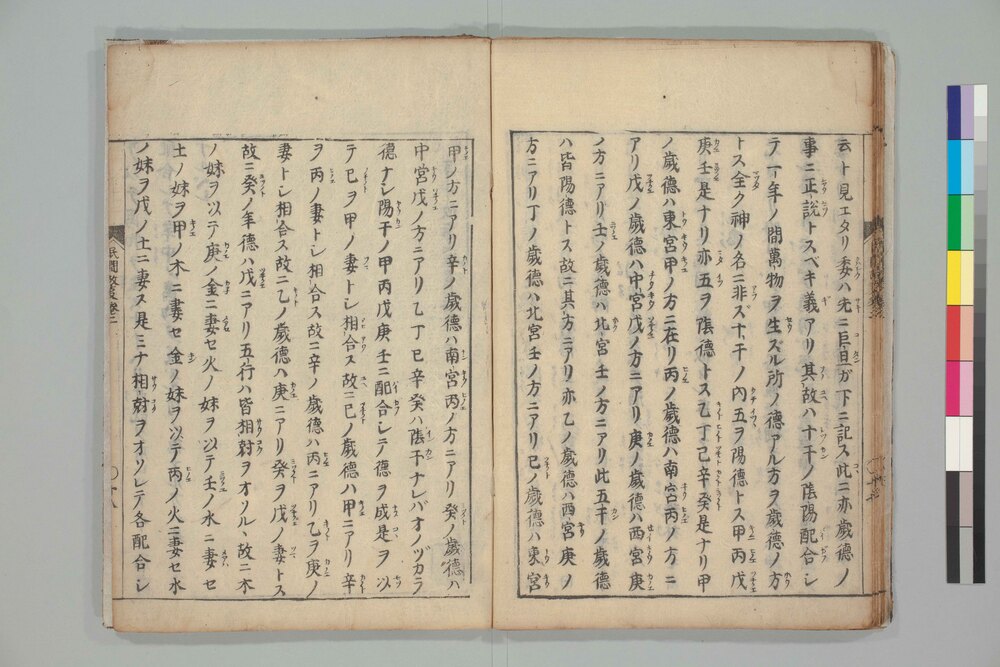 云ト見エタリ委ハ先ニ巨旦ガ下ニ記ス此ニ亦歳德ノ
事ニ正說トスベキ義アリ其故ハ十干ノ陰陽配合シ
テ一年ノ間萬物ヲ生ズル所ノ德アル方ヲ歳德ノ方
トス全ク神ノ名ニ非ズ十干ノ内五ヲ陽德トス甲丙戊
庚壬是ナリ亦五ヲ陰德トス乙丁己辛癸是ナリ甲
ノ歳德ハ東宮甲ノ方ニ在リ丙ノ歳德ハ南宮丙ノ方ニ
アリ戊ノ歳德ハ中宮戊ノ方ニアリ庚ノ歳德ハ西宮庚
ノ方ニアリ壬ノ歳德ハ北宮壬ノ方ニアリ此五干ノ歳德
ハ皆陽德トス故ニ其方ニアリ亦乙ノ歳德ハ西宮庚ノ
方ニアリ丁ノ歳德ハ北宮壬ノ方ニアリ己ノ歳德ハ東宮
甲ノ方ニアリ辛ノ歳德ハ南宮丙ノ方ニアリ癸ノ歳德ハ
中宮戊ノ方ニアリ乙丁己辛癸ハ陰干ナレバオノヅカラ
德ナシ陽干ノ甲丙戊庚壬ニ配合シテ德ヲ成是ヲ以
テ己ヲ甲ノ妻トシ相合ス故ニ己ノ歳德ハ甲ニアリ辛
ヲ丙ノ妻トシ相合ス故ニ辛ノ歳德ハ丙ニアリ乙ヲ庚ノ
妻トシ相合ス故ニ乙ノ歳德ハ庚ニアリ癸ヲ戊ノ妻トス
故ニ癸ノ年德ハ戊ニアリ五行ハ皆相尅ヲオソル故ニ木
ノ妹ヲ以テ庚ノ金ニ妻セ火ノ妹ヲ以テ壬ノ水ニ妻セ
土ノ妹ヲ甲ノ木ニ妻セ金ノ妹ヲ以テ丙ノ火ニ妻セ水
ノ妹ヲ戊ノ土ニ妻ス是ミナ相尅ヲオソレテ各配合シ
民間 卷二
〇十八